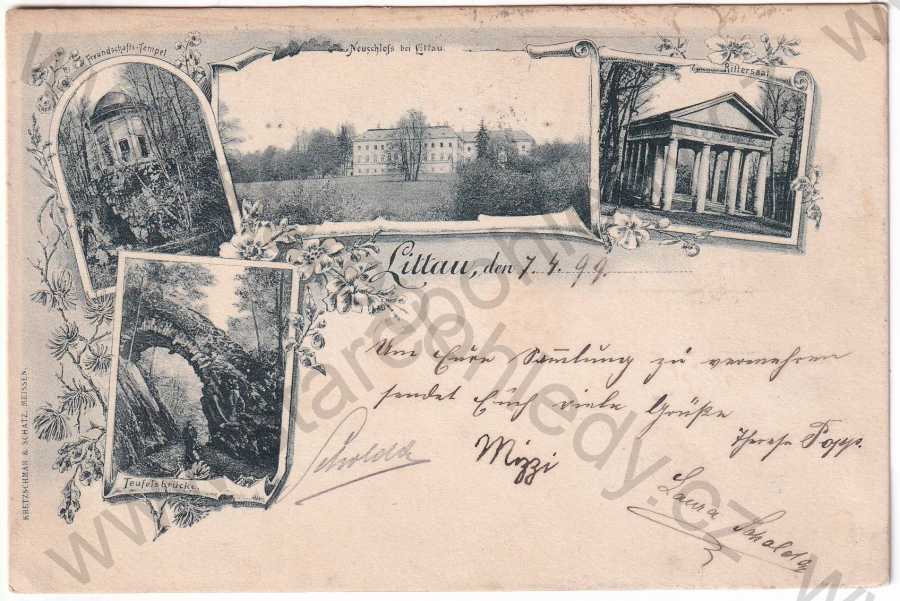 Freundschafts-Tempel
Neuschloſs bei Littau.
Rittersaal
Littau, den 7. 4. 99.
Um Eure Sammlung zu vermehren
sendet Euch viele Grüße
Therese Popp.
Mizzi
Laura
Teufelsbrücke.
KRETZSCHMAR & SCHATZ, MEISSEN.
www.starepohledy.cz